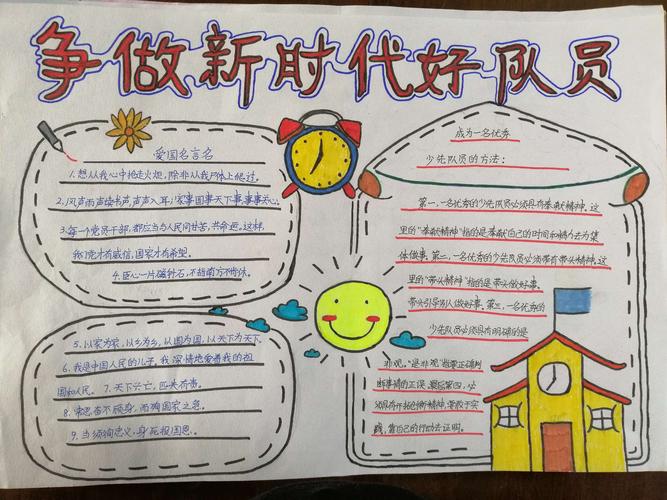 争做新时代好队员
爱国名言名
1.想从我心中抢走火炬,除非从我尸体上爬过。
2.风声雨声读书声,声声入耳;家事国事天下事,事事关心。
3.每个党员干部,都应当与人民同甘苦,共命运。这样,
我们党才有威信,国家才有希望。
4.臣心一片磁针石,不指南方不肯休。
5.以家为家,以乡为乡,以国为国,以天下为天下。
6.我是中国人民的儿子,我深情地爱着我的祖
国和人民。7.天下兴亡,匹夫有责。
8.常思奋不顾身,而殉国家之急。
9.当须徇忠义,身死报国恩。
成为一名优秀
少先队员的方法:
第一,一名优秀的少先队员必须具有奉献精神。这
里的“奉献精神”指的是奉献自己的时间和精力去为集
体做事。第二,一名优秀的少先队员必须带有带头精神。这
里的“带头精神”指的是带头做好事。
带头引导别人做好事。第三,一名优秀的
少先队员必须具有明确的是
非观。“是非观”指要正确判
断事情的正误。最后第四,必
须具有开拓创新精神,要敢于实
践,靠自己的行动去证明。